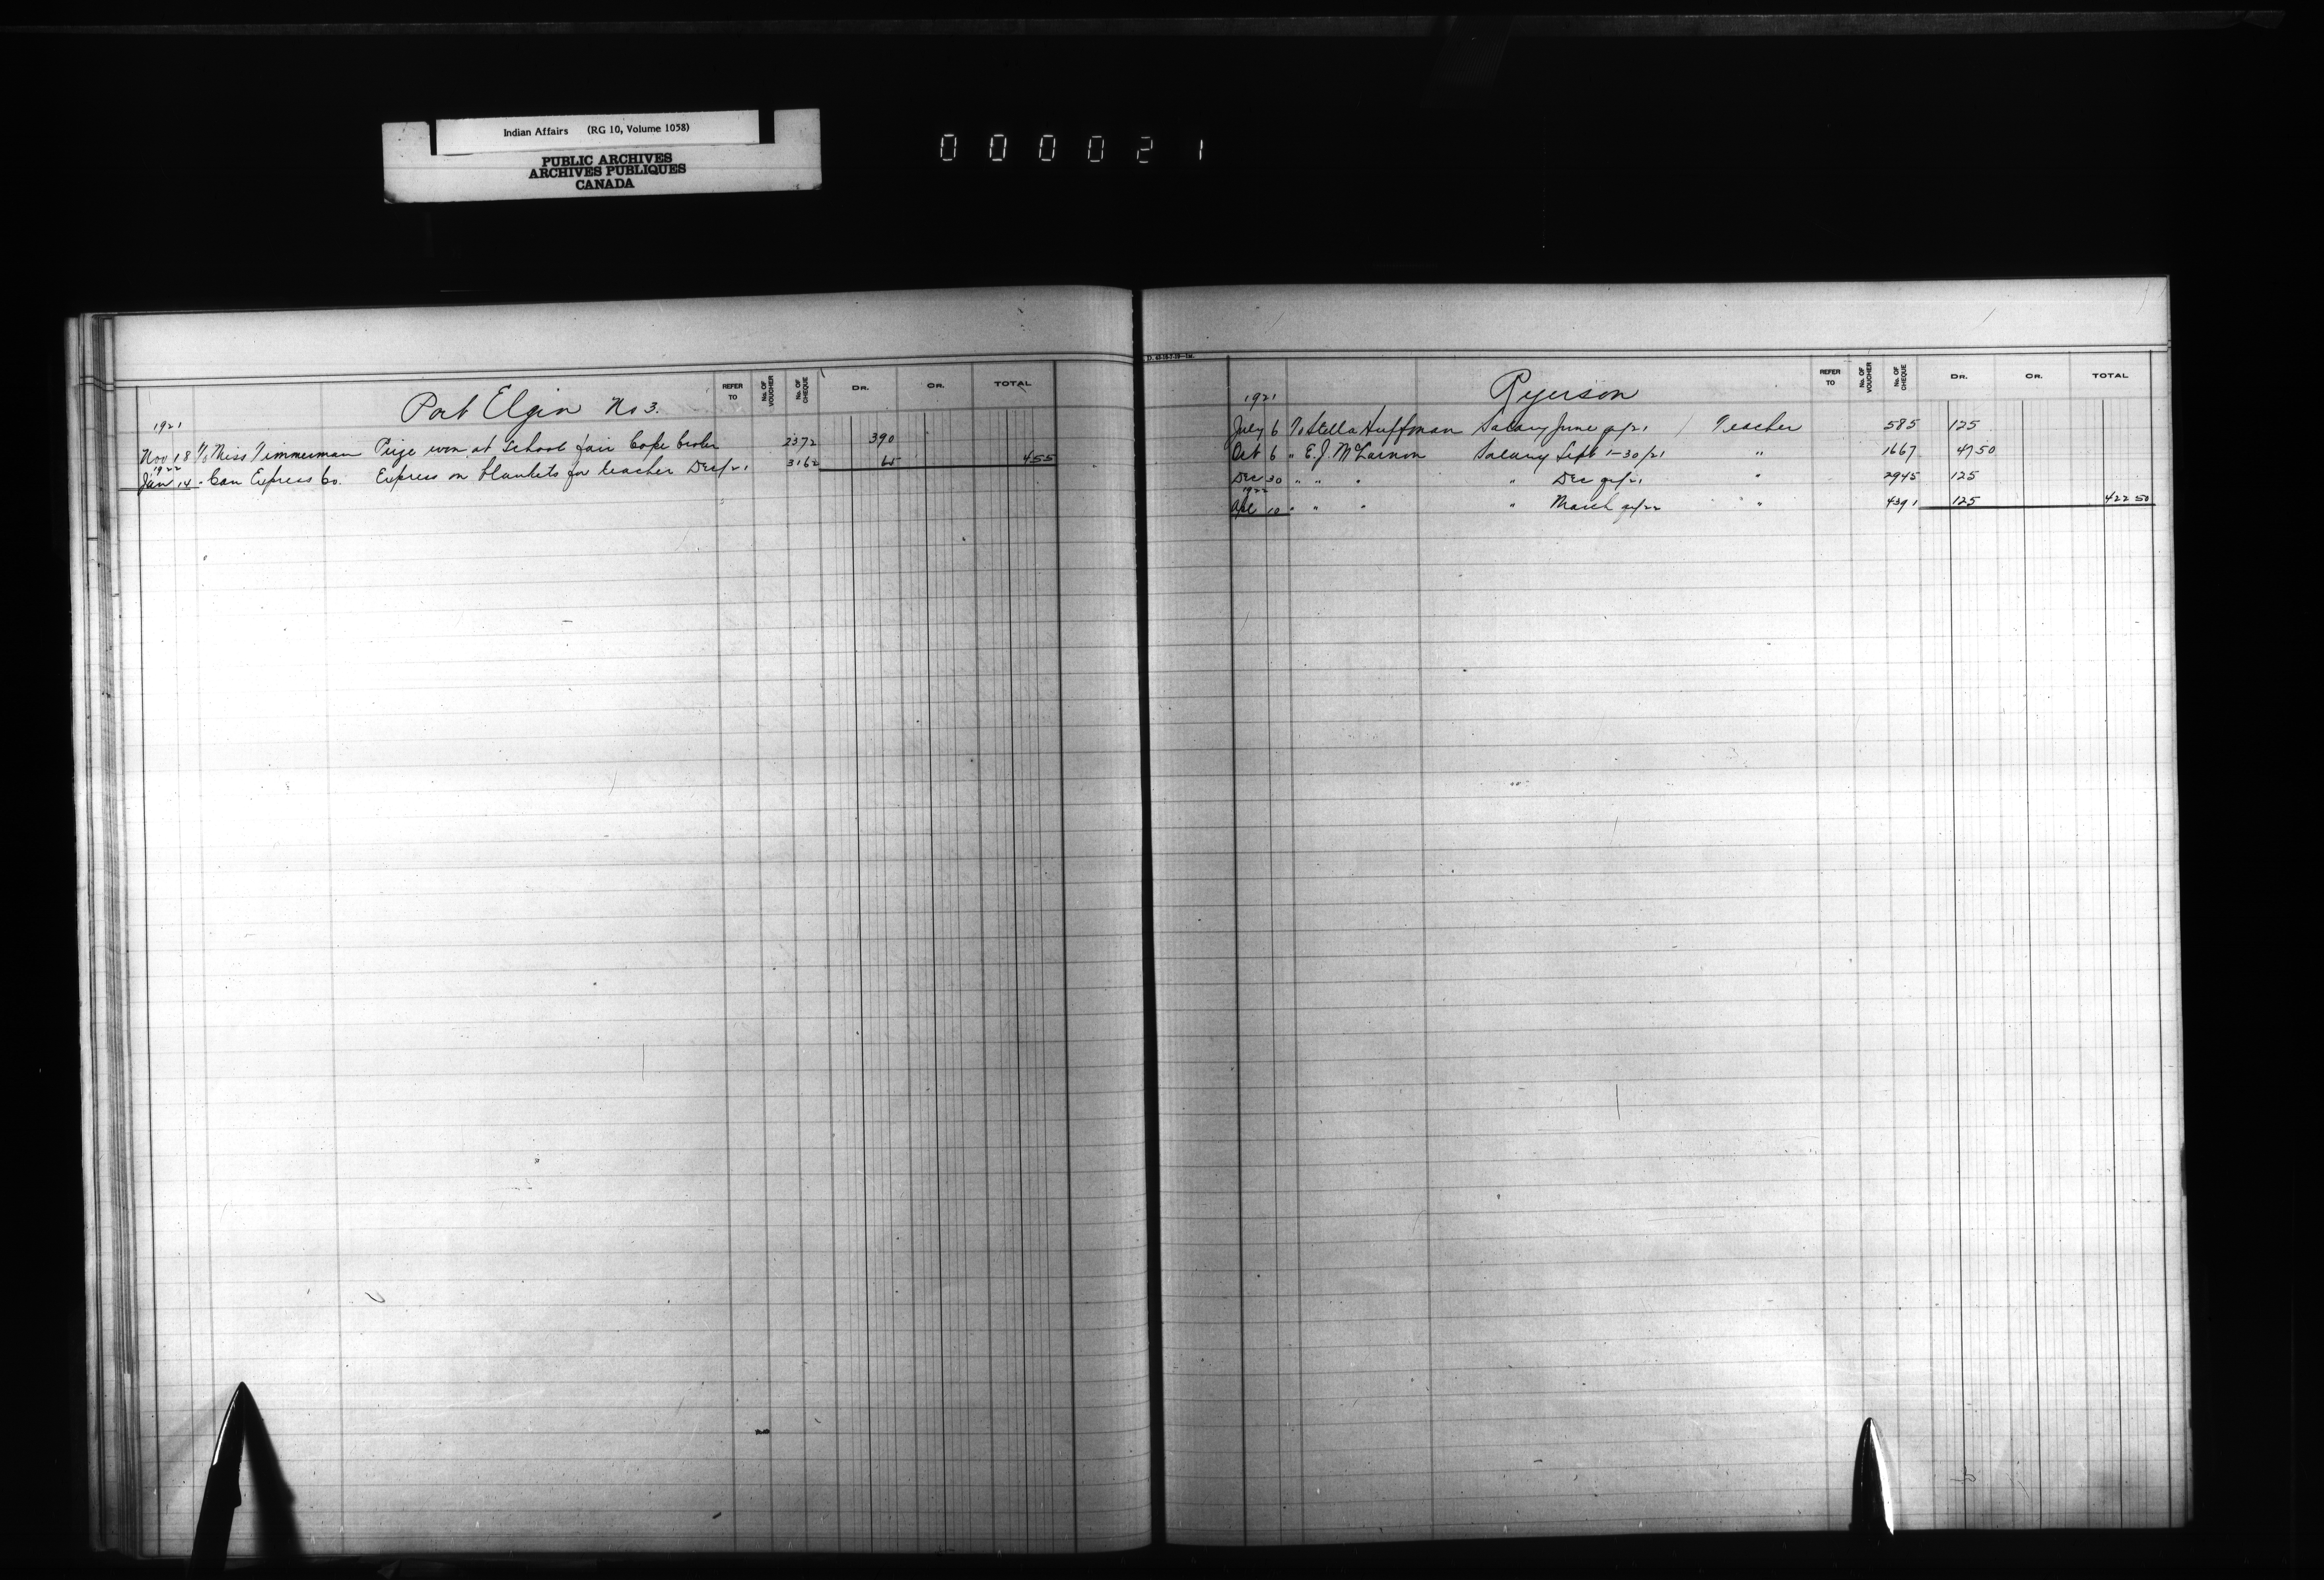 Indian Affairs (RG 10, Volume 1058)
PUBLIC ARCHIVES
ARCHIVES PUBLIQUES
CANADA
000021
REFER TO No. OF VOUCHER No. OF CHEQUE DR. CR. TOTAL
Port Elgin No 3.
1921
Nov 18 To Miss Timmerman Prize won at School fair Cope Croker 2372 3 90
1922
Jan 14 " Can Express Co. Express on blankets for teacher Dec/21 3162 65 4 55
REFER TO No. OF VOUCHER No. OF CHEQUE DR. CR. TOTAL
Ryerson
1921
July 6 To Stella Huffman Salary June qr/21 Teacher 585 125
Oct 6 " E.J. McLarnon Salary Sept 1-30/21 " 1667 47 50
Dec 30 " " " " Dec qr/21 " 2945 125
1922
Apl 10 " " " " March qr/22 " 4391 125 422 50